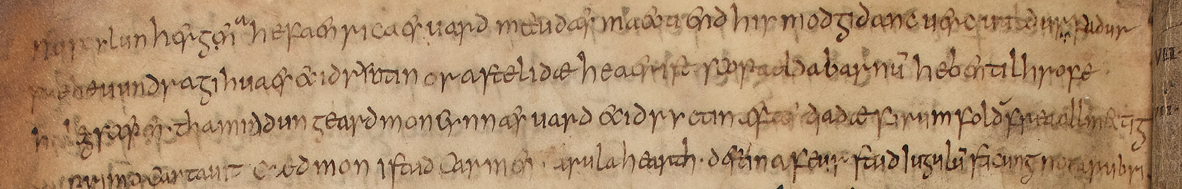 nu scylun hergan hefaenricaes uard metudæs maecti end his modgidanc uerc uuldurfadur
sue he uundra gihuaes eci dryctin or astelidæ he aerist scop aelda barnū heben til hrofe
haleg scepen. tha middungeard moncynnæs uard eci dryctin æfter tiadæ firum foldu frea allmectig
primo cantauit Cædmon istud carmen. arula hearth. destina feurstud iugulū sticung